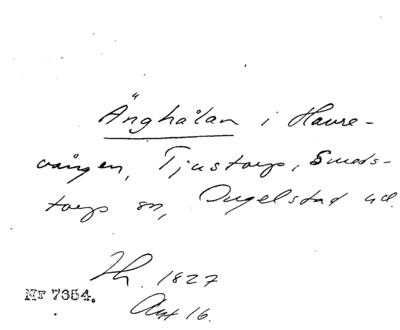 Änghålan i Havre-
vången, Tjustorp, Smeds-
torps sn, Ingelstad hd.
Th. 1827
Akt 16.
Nr 7354.